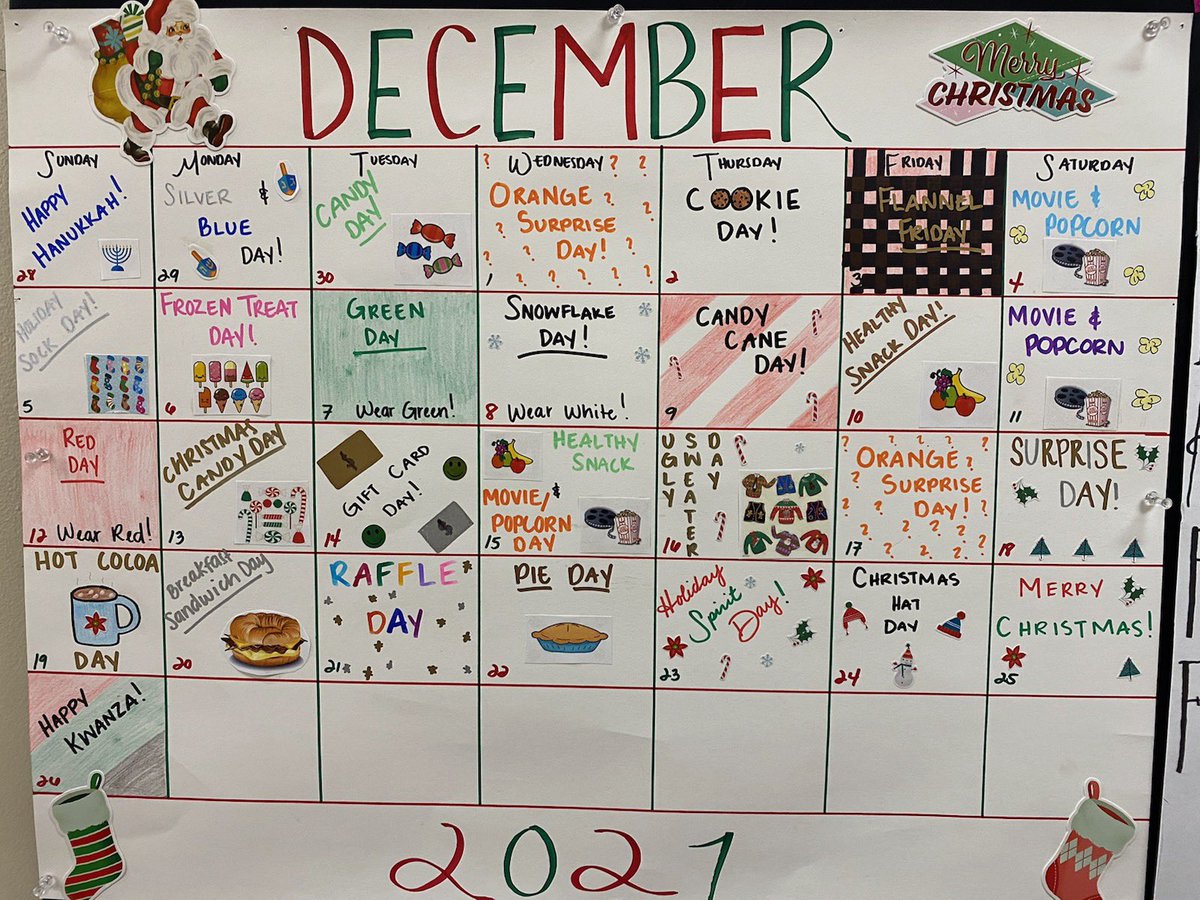 DECEMBER
Merry
CHRISTMAS
SUNDAY
MONDAY
TUESDAY
WEDNESDAY
THURSDAY
FRIDAY
SATURDAY
HAPPY
HANUKKAH!
28
SILVER &
BLUE
DAY!
29
CANDY
DAY!
30
ORANGE
SURPRISE
DAY!
1
COOKIE
DAY!
2
FLANNEL
FRIDAY
3
MOVIE &
POPCORN
4
HOLIDAY
SOCK DAY!
5
FROZEN TREAT
DAY!
6
GREEN
DAY
7 Wear Green!
SNOWFLAKE
DAY!
8 Wear White!
CANDY
CANE
DAY!
9
HEALTHY
SNACK DAY!
10
MOVIE &
POPCORN
11
RED
DAY
12 Wear Red!
CHRISTMAS
CANDY DAY
13
GIFT CARD
DAY!
14
HEALTHY
SNACK
&
MOVIE/
POPCORN
DAY
15
UGLY
SWEATER
DAY
16
ORANGE
SURPRISE
DAY!
17
SURPRISE
DAY!
18
HOT COCOA
DAY
19
Breakfast
Sandwich Day
20
RAFFLE
DAY
21
PIE DAY
22
Holiday
Spirit
Day!
23
CHRISTMAS
HAT
DAY
24
MERRY
CHRISTMAS!
25
HAPPY
KWANZA!
26
2021